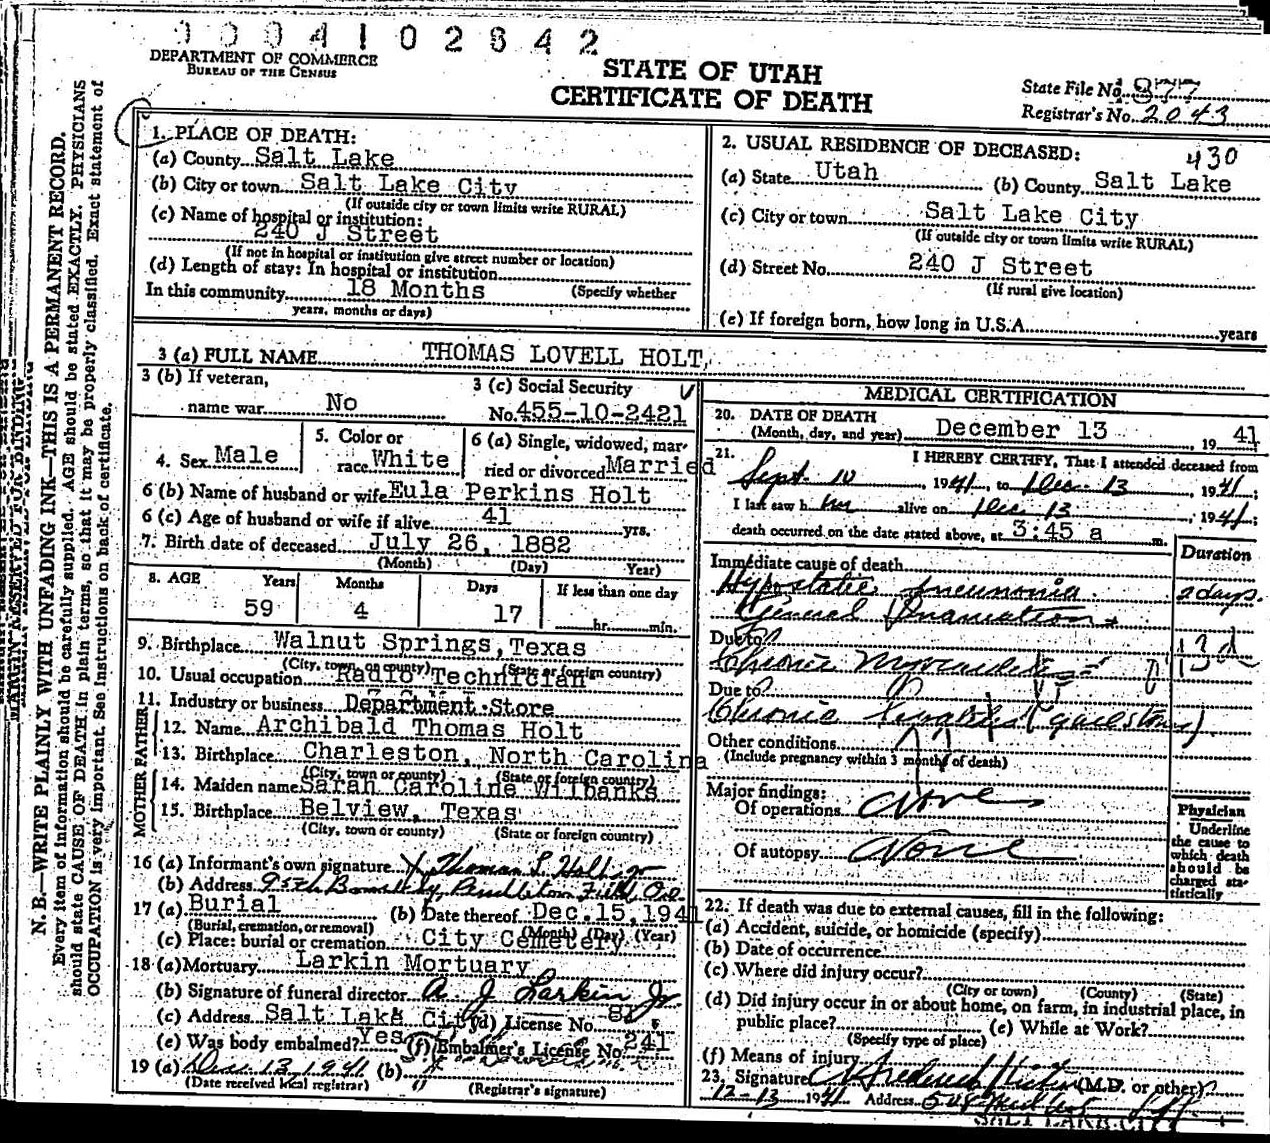 0004102842
DEPARTMENT OF COMMERCE
BUREAU OF THE CENSUS
STATE OF UTAH
CERTIFICATE OF DEATH
State File No. 1877
Registrar's No. 2043
N. B.—WRITE PLAINLY WITH UNFADING INK—THIS IS A PERMANENT RECORD.
Every item of information should be carefully supplied. AGE should be stated EXACTLY. PHYSICIANS
should state CAUSE OF DEATH in plain terms, so that it may be properly classified. Exact statement of
OCCUPATION is very important. See instructions on back of certificate.
MARGIN RESERVED FOR BINDING
1. PLACE OF DEATH:
(a) County Salt Lake
(b) City or town Salt Lake City
(If outside city or town limits write RURAL)
(c) Name of hospital or institution:
240 J Street
(If not in hospital or institution give street number or location)
(d) Length of stay: In hospital or institution
In this community 18 Months (Specify whether
years, months or days)
2. USUAL RESIDENCE OF DECEASED: 430
(a) State Utah (b) County Salt Lake
(c) City or town Salt Lake City
(If outside city or town limits write RURAL)
(d) Street No. 240 J Street
(If rural give location)
(e) If foreign born, how long in U.S.A. years
3 (a) FULL NAME THOMAS LOVELL HOLT,
3 (b) If veteran, name war No
3 (c) Social Security No. 455-10-2421
4. Sex Male
5. Color or race White
6 (a) Single, widowed, married or divorced Married
6 (b) Name of husband or wife Eula Perkins Holt
6 (c) Age of husband or wife if alive 41 yrs.
7. Birth date of deceased July 26, 1882
(Month) (Day) Year)
8. AGE Years Months Days If less than one day
59 4 17 hr. min.
9. Birthplace Walnut Springs, Texas
(City, town, or county) (State or foreign country)
10. Usual occupation Radio Technician
11. Industry or business Department Store
FATHER
12. Name Archibald Thomas Holt
13. Birthplace Charleston, North Carolina
(City, town or county) (State or foreign country)
MOTHER
14. Maiden name Sarah Caroline Wilbanks
15. Birthplace Belview, Texas
(City, town or county) (State or foreign country)
16 (a) Informant's own signature X Thomas L Holt Jr
(b) Address 95th Bomb Pendleton Field, Ore.
17 (a) Burial (b) Date thereof Dec. 15, 1941
(Burial, cremation, or removal) (Month) (Day) (Year)
(c) Place: burial or cremation City Cemetery
18 (a) Mortuary Larkin Mortuary
(b) Signature of funeral director A. J Larkin Jr
(c) Address Salt Lake City (d) License No. 81
(e) Was body embalmed? Yes (f) Embalmer's License No. 241
19 (a) Dec. 13, 1941 (b)
(Date received local registrar) (Registrar's signature)
MEDICAL CERTIFICATION
20. DATE OF DEATH
(Month, day, and year) December 13, 1941
21. I HEREBY CERTIFY, That I attended deceased from
Sept. 10, 1941, to Dec. 13, 1941;
I last saw him alive on Dec 13, 1941;
death occurred on the date stated above, at 3:45 a m.
Duration
Immediate cause of death
Hypostatic pneumonia 2 days.
General Inanition
Due to
Chronic Myocarditis
Due to
Chronic (gallstones)
Other conditions
(Include pregnancy within 3 months of death)
Major findings:
Of operations None
Of autopsy None
Physician
Underline
the cause to
which death
should be
charged sta-
tistically
22. If death was due to external causes, fill in the following:
(a) Accident, suicide, or homicide (specify)
(b) Date of occurrence
(c) Where did injury occur?
(City or town) (County) (State)
(d) Did injury occur in or about home, on farm, in industrial place, in
public place? (e) While at Work?
(Specify type of place)
(f) Means of injury
23. Signature (M.D. or other)
12-13 1941 Address
SALT LAKE CITY